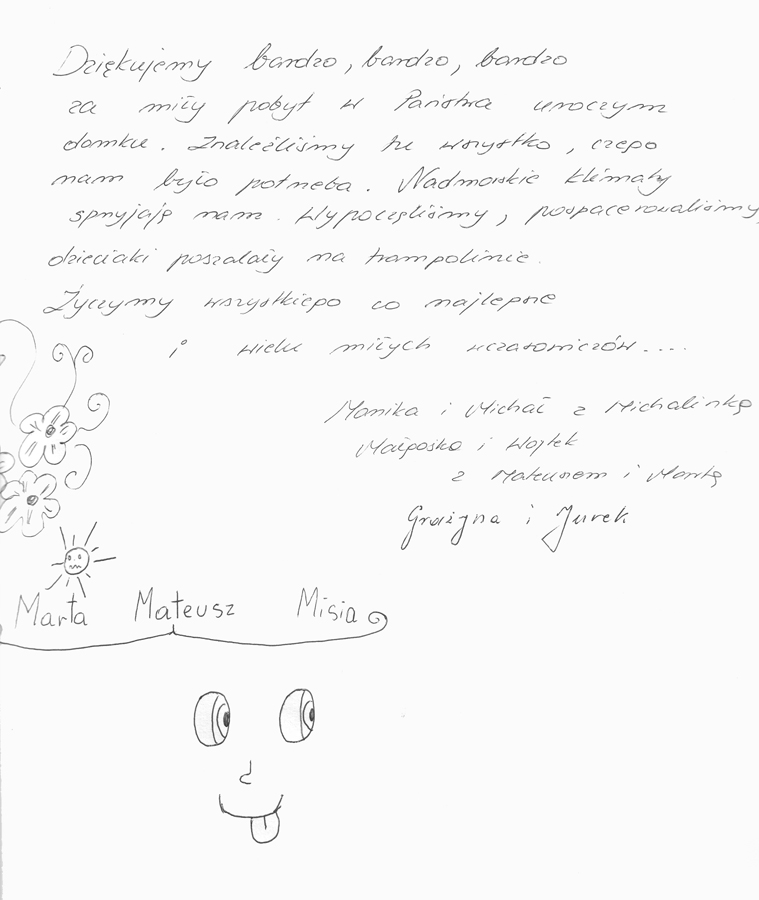 Dziękujemy bardzo, bardzo, bardzo
za miły pobyt w Państwa uroczym
domku. Znaleźliśmy tu wszystko, czego
nam było potrzeba. Nadmorskie klimaty
sprzyjają nam. Wypoczęliśmy, pospacerowaliśmy,
dzieciaki poszalały na trampolinie.
Życzymy wszystkiego co najlepsze
i wielu miłych wczasowiczów....
Monika i Michał z Michalinką
Małgośka i Wojtek
z Mateuszem i Martą
Grażyna i Jurek
Marta Mateusz Misia